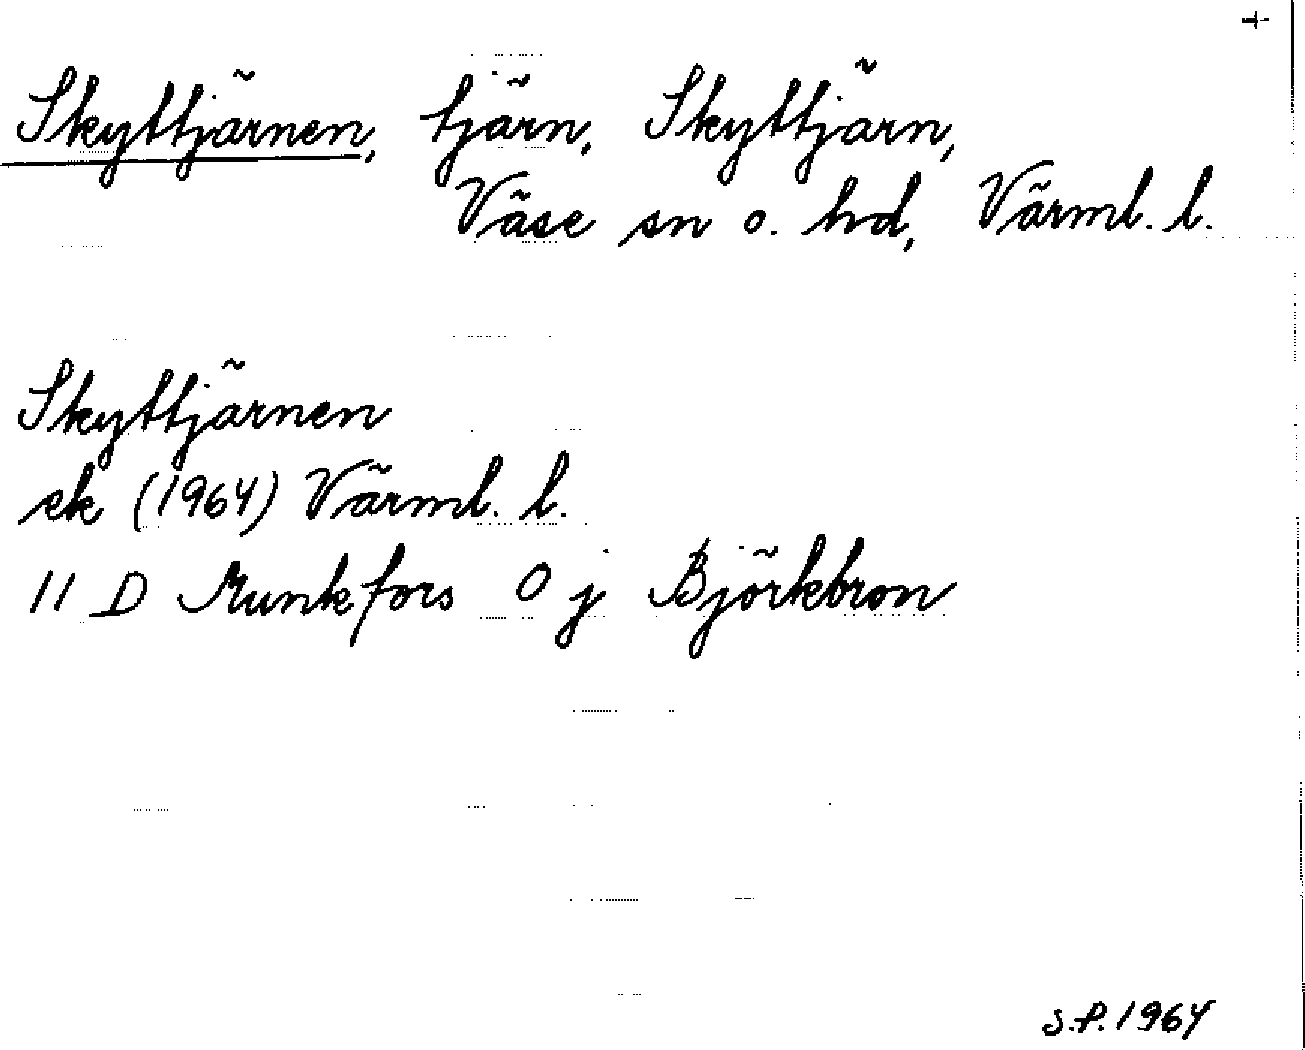 +
Skyttjärnen, tjärn, Skyttjärn,
Väse sn o. hd, Värml. l.
Skyttjärnen
ek (1964) Värml. l.
11 D Munkfors 0 j Björkebron
S.P. 1964